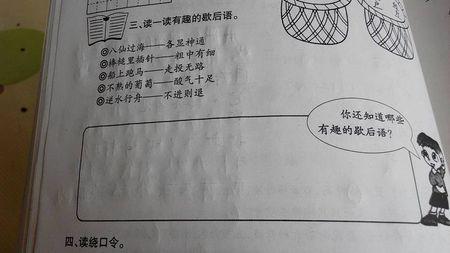 三、读一读有趣的歇后语。
◎八仙过海——各显神通
◎棒槌里插针——粗中有细
◎船上跑马——走投无路
◎不熟的葡萄——酸气十足
◎逆水行舟——不进则退
你还知道哪些
有趣的歇后语?
四、读绕口令。